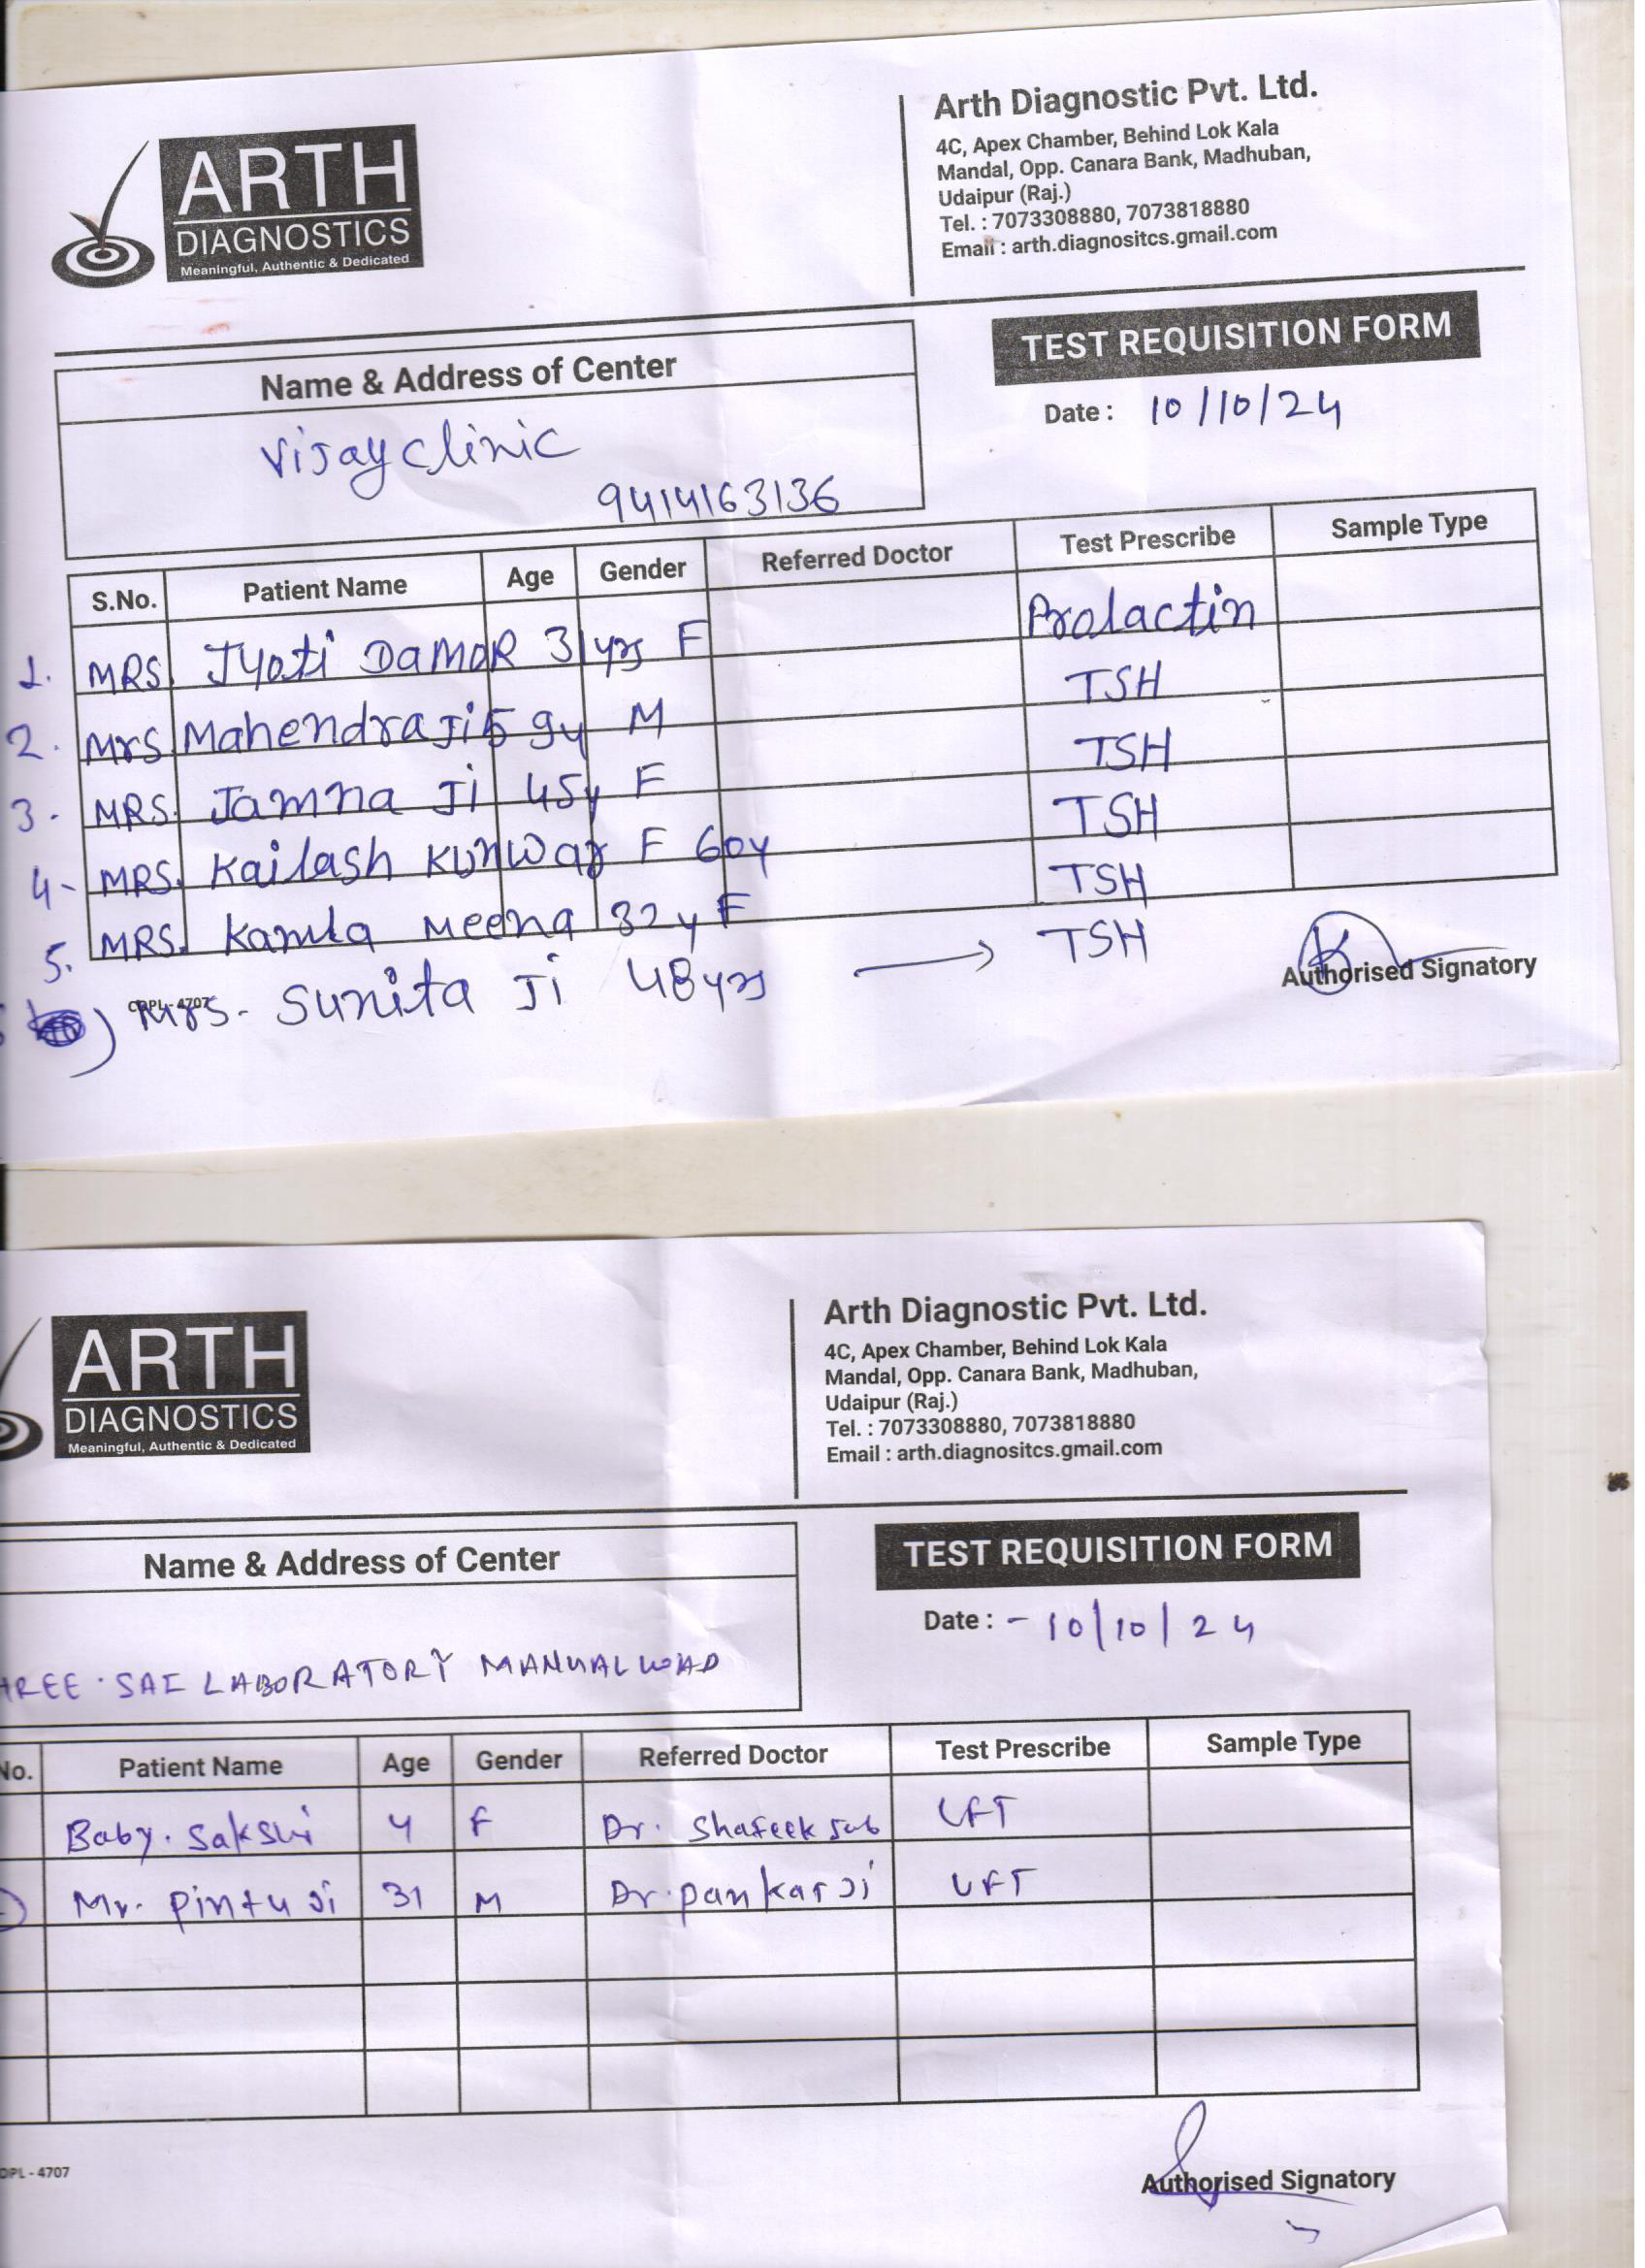 ARTH
DIAGNOSTICS
Meaningful, Authentic & Dedicated
Arth Diagnostic Pvt. Ltd.
4C, Apex Chamber, Behind Lok Kala
Mandal, Opp. Canara Bank, Madhuban,
Udaipur (Raj.)
Tel. : 7073308880, 7073818880
Email : arth.diagnositcs.gmail.com
TEST REQUISITION FORM
Name & Address of Center
Date : 10/10/24
Vijay clinic
9414163136
S.No. Patient Name Age Gender Referred Doctor Test Prescribe Sample Type
1. MRS. Jyoti DamoR 31 yrs F Prolactin
2. Mrs. Mahendra Ji 59y M TSH
3. MRS. Jamna Ji 45y F TSH
4- MRS. Kailash Kunwar F 60y TSH
5. MRS. Kamla Meena 32y F TSH
) Mrs. Sunita Ji 48 yrs → TSH
Authorised Signatory
ARTH
DIAGNOSTICS
Meaningful, Authentic & Dedicated
Arth Diagnostic Pvt. Ltd.
4C, Apex Chamber, Behind Lok Kala
Mandal, Opp. Canara Bank, Madhuban,
Udaipur (Raj.)
Tel. : 7073308880, 7073818880
Email : arth.diagnositcs.gmail.com
TEST REQUISITION FORM
Name & Address of Center
Date : - 10/10/24
HREE. SAI LABORATORY MANUALWAD
No. Patient Name Age Gender Referred Doctor Test Prescribe Sample Type
Baby. Sakshi 4 F Dr. Shafeek sab LFT
Mr. Pintu Ji 31 M Dr. Pankaj Ji LFT
DPL - 4707
Authorised Signatory